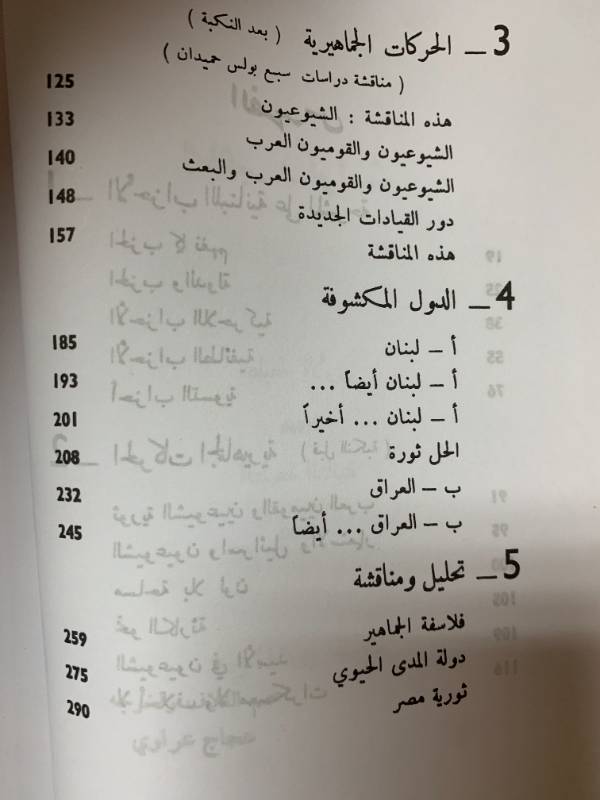 3 _ الحركات الجماهيرية ( بعد النكبة )
( مناقشة دراسات سبع بولس حميدان )
هذه المناقشة : الشيوعيون 125
الشيوعيون والقوميون العرب 133
الشيوعيون والقوميون العرب والبعث 140
دور القيادات الجديدة 148
هذه المناقشة 157
4 _ الدول المكشوفة
أ – لبنان 185
أ – لبنان أيضاً ... 193
أ – لبنان ... أخيراً 201
الحل ثورة 208
ب – العراق 232
ب – العراق ... أيضاً 245
5 _ تحليل ومناقشة
فلاسفة الجماهير 259
دولة المدى الحيوي 275
ثورية مصر 290